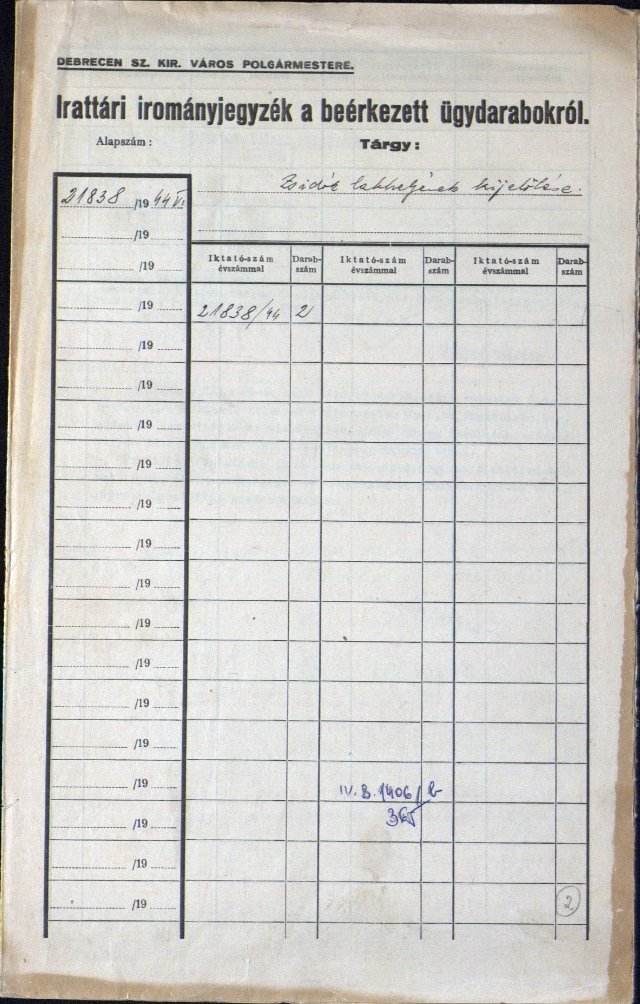 DEBRECEN SZ. KIR. VÁROS POLGÁRMESTERE.
Irattári irományjegyzék a beérkezett ügydarabokról.
Alapszám :
Tárgy :
21838 /19 44 VI.
Zsidók lakhelyének kijelölése.
/19
/19
Iktató-szám évszámmal Darab-szám Iktató-szám évszámmal Darab-szám Iktató-szám évszámmal Darab-szám
/19 21838/44 2
/19
/19
/19
/19
/19
/19
/19
/19
/19
/19
/19
/19
IV. B. 1406/b
365
/19
/19
/19
2